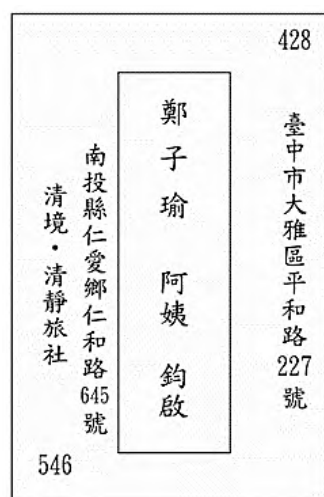 428
臺中市大雅區平和路227號
鄭子瑜 阿姨 鈞啟
南投縣仁愛鄉仁和路645號
清境・清靜旅社
546